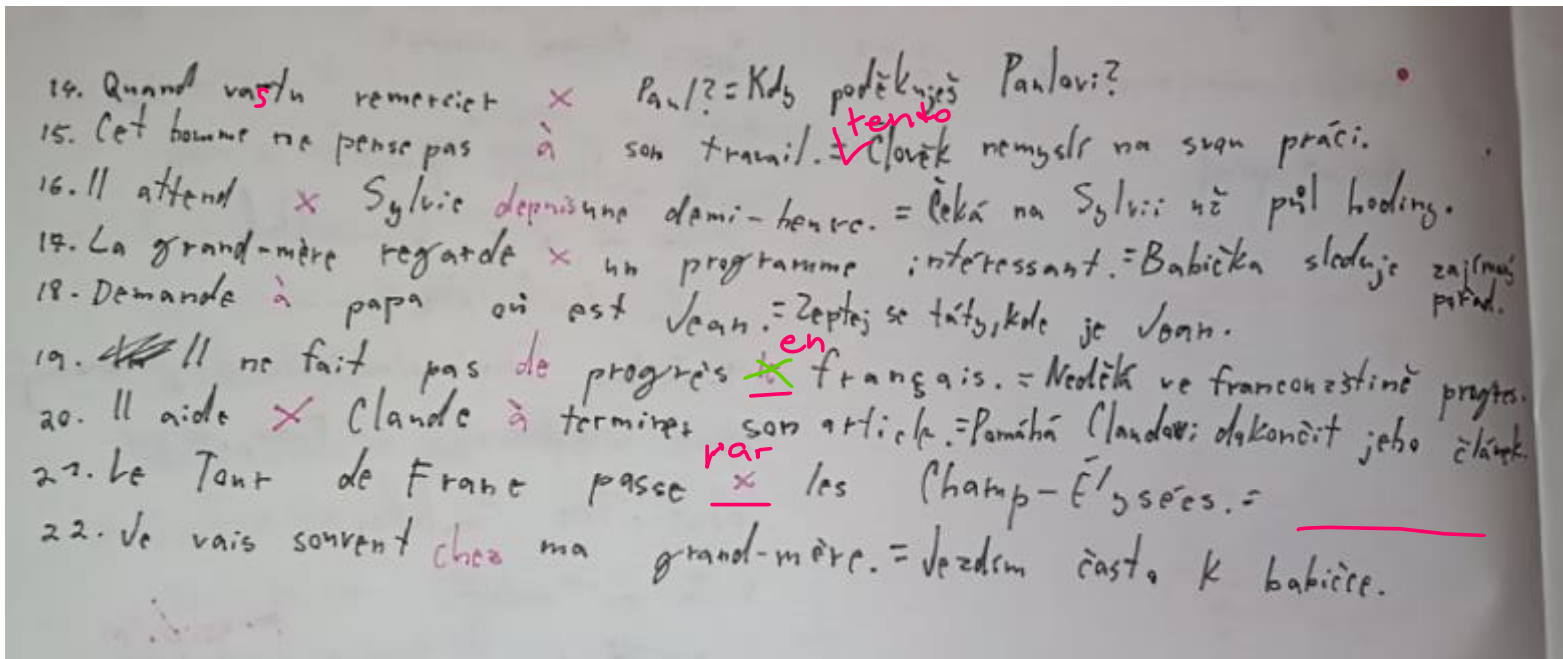 14. Quand vas tu remercier x Paul? = Kdy poděkuješ Paulovi?
tento
15. Cet homme ne pense pas à son travail. = Človĕk nemyslí na svou práci.
16. Il attend x Sylvie depuis une demi-heure. = Čeká na Sylvii už půl hodiny.
17. La grand-mère regarde x un programme intéressant. = Babička sleduje zajímavý pořad.
18. Demande à papa où est Jean. = Zeptej se táty, kde je Jean.
en
19. Il ne fait pas de progrès français. = Nedělá ve francouzštině progres.
20. Il aide x Claude à terminer son article. = Pomáhá Claudovi dokončit jeho článek.
par
21. Le Tour de Frane passe x les Champ-Élysées. =
22. Je vais souvent chez ma grand-mère. = Jezdím často k babičce.